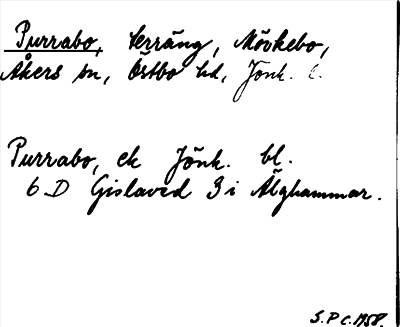 Purrabo, terräng, Mövkebo,
Åkers sn, Östbo hd, Jönk. l.
Purrabo, ek Jönk. bl.
6 D Gislaved 3 i Älghammar.
S.P.C. 1958.